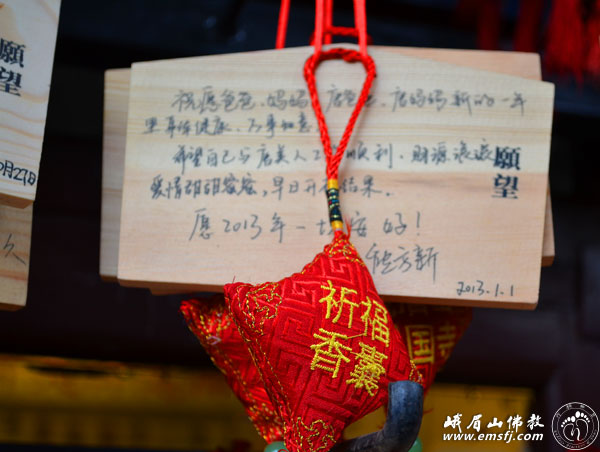 願望
0月27日
祝愿爸爸、妈妈、唐爸爸、唐妈妈新的一年
里身体健康、万事如意
希望自己与唐美人工 顺利、财源滚滚
爱情甜甜蜜蜜,早日开 结果。
愿2013年一切安好!
2013.1.1
願望
祈福
香囊
国寺
峨眉山佛教
www.emsfj.com